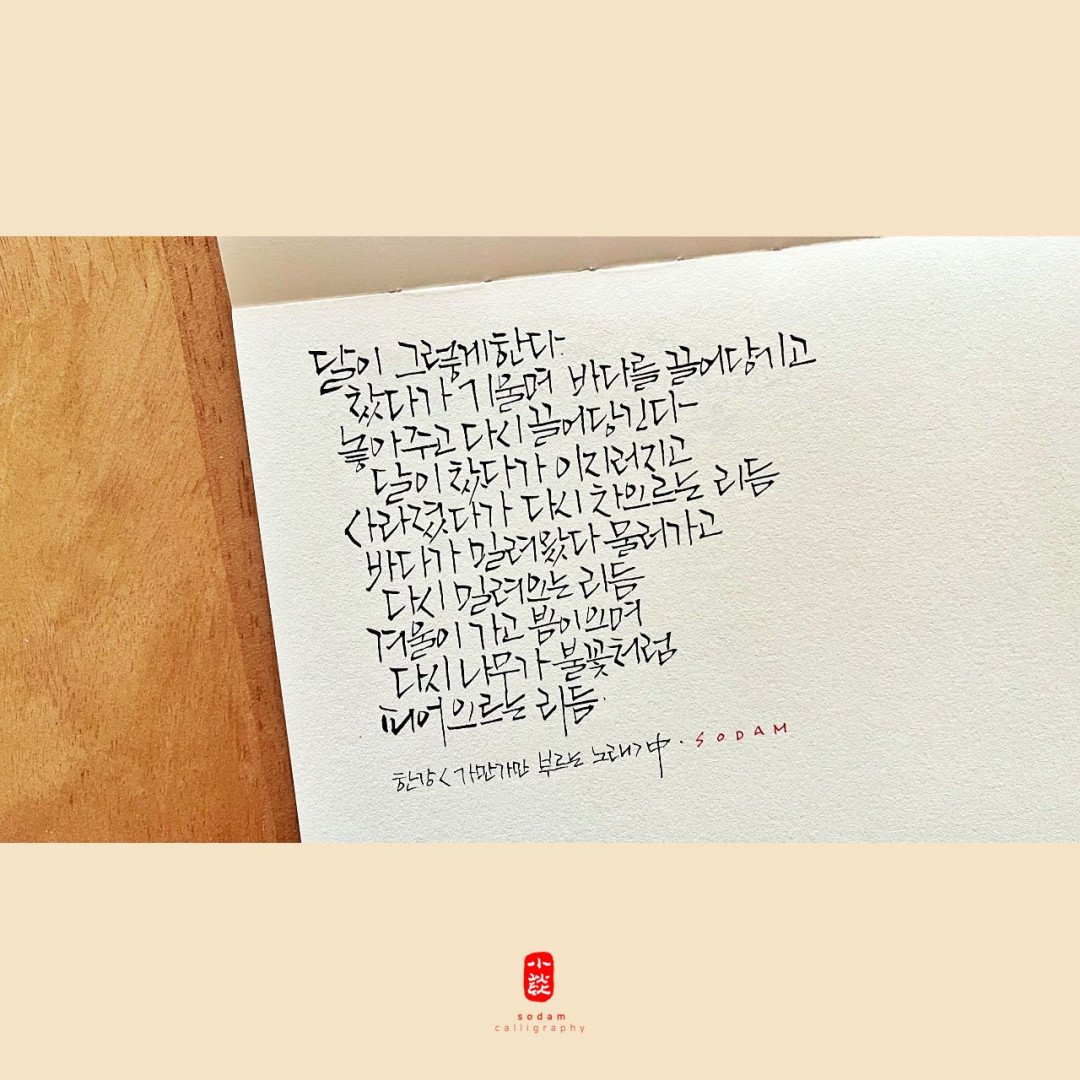 달이 그렇게 한다.
찼다가 기울며 바다를 끌어당기고
놓아주고 다시 끌어당긴다
달이 찼다가 이지러지고
사라졌다가 다시 차오르는 리듬
바다가 밀려왔다 물러가고
다시 밀려오는 리듬
겨울이 가고 봄이 오며
다시 나무가 불꽃처럼
피어오르는 리듬.
한강 <가만가만 부르는 노래> 中 · SODAM
小
談
sodam
calligraphy